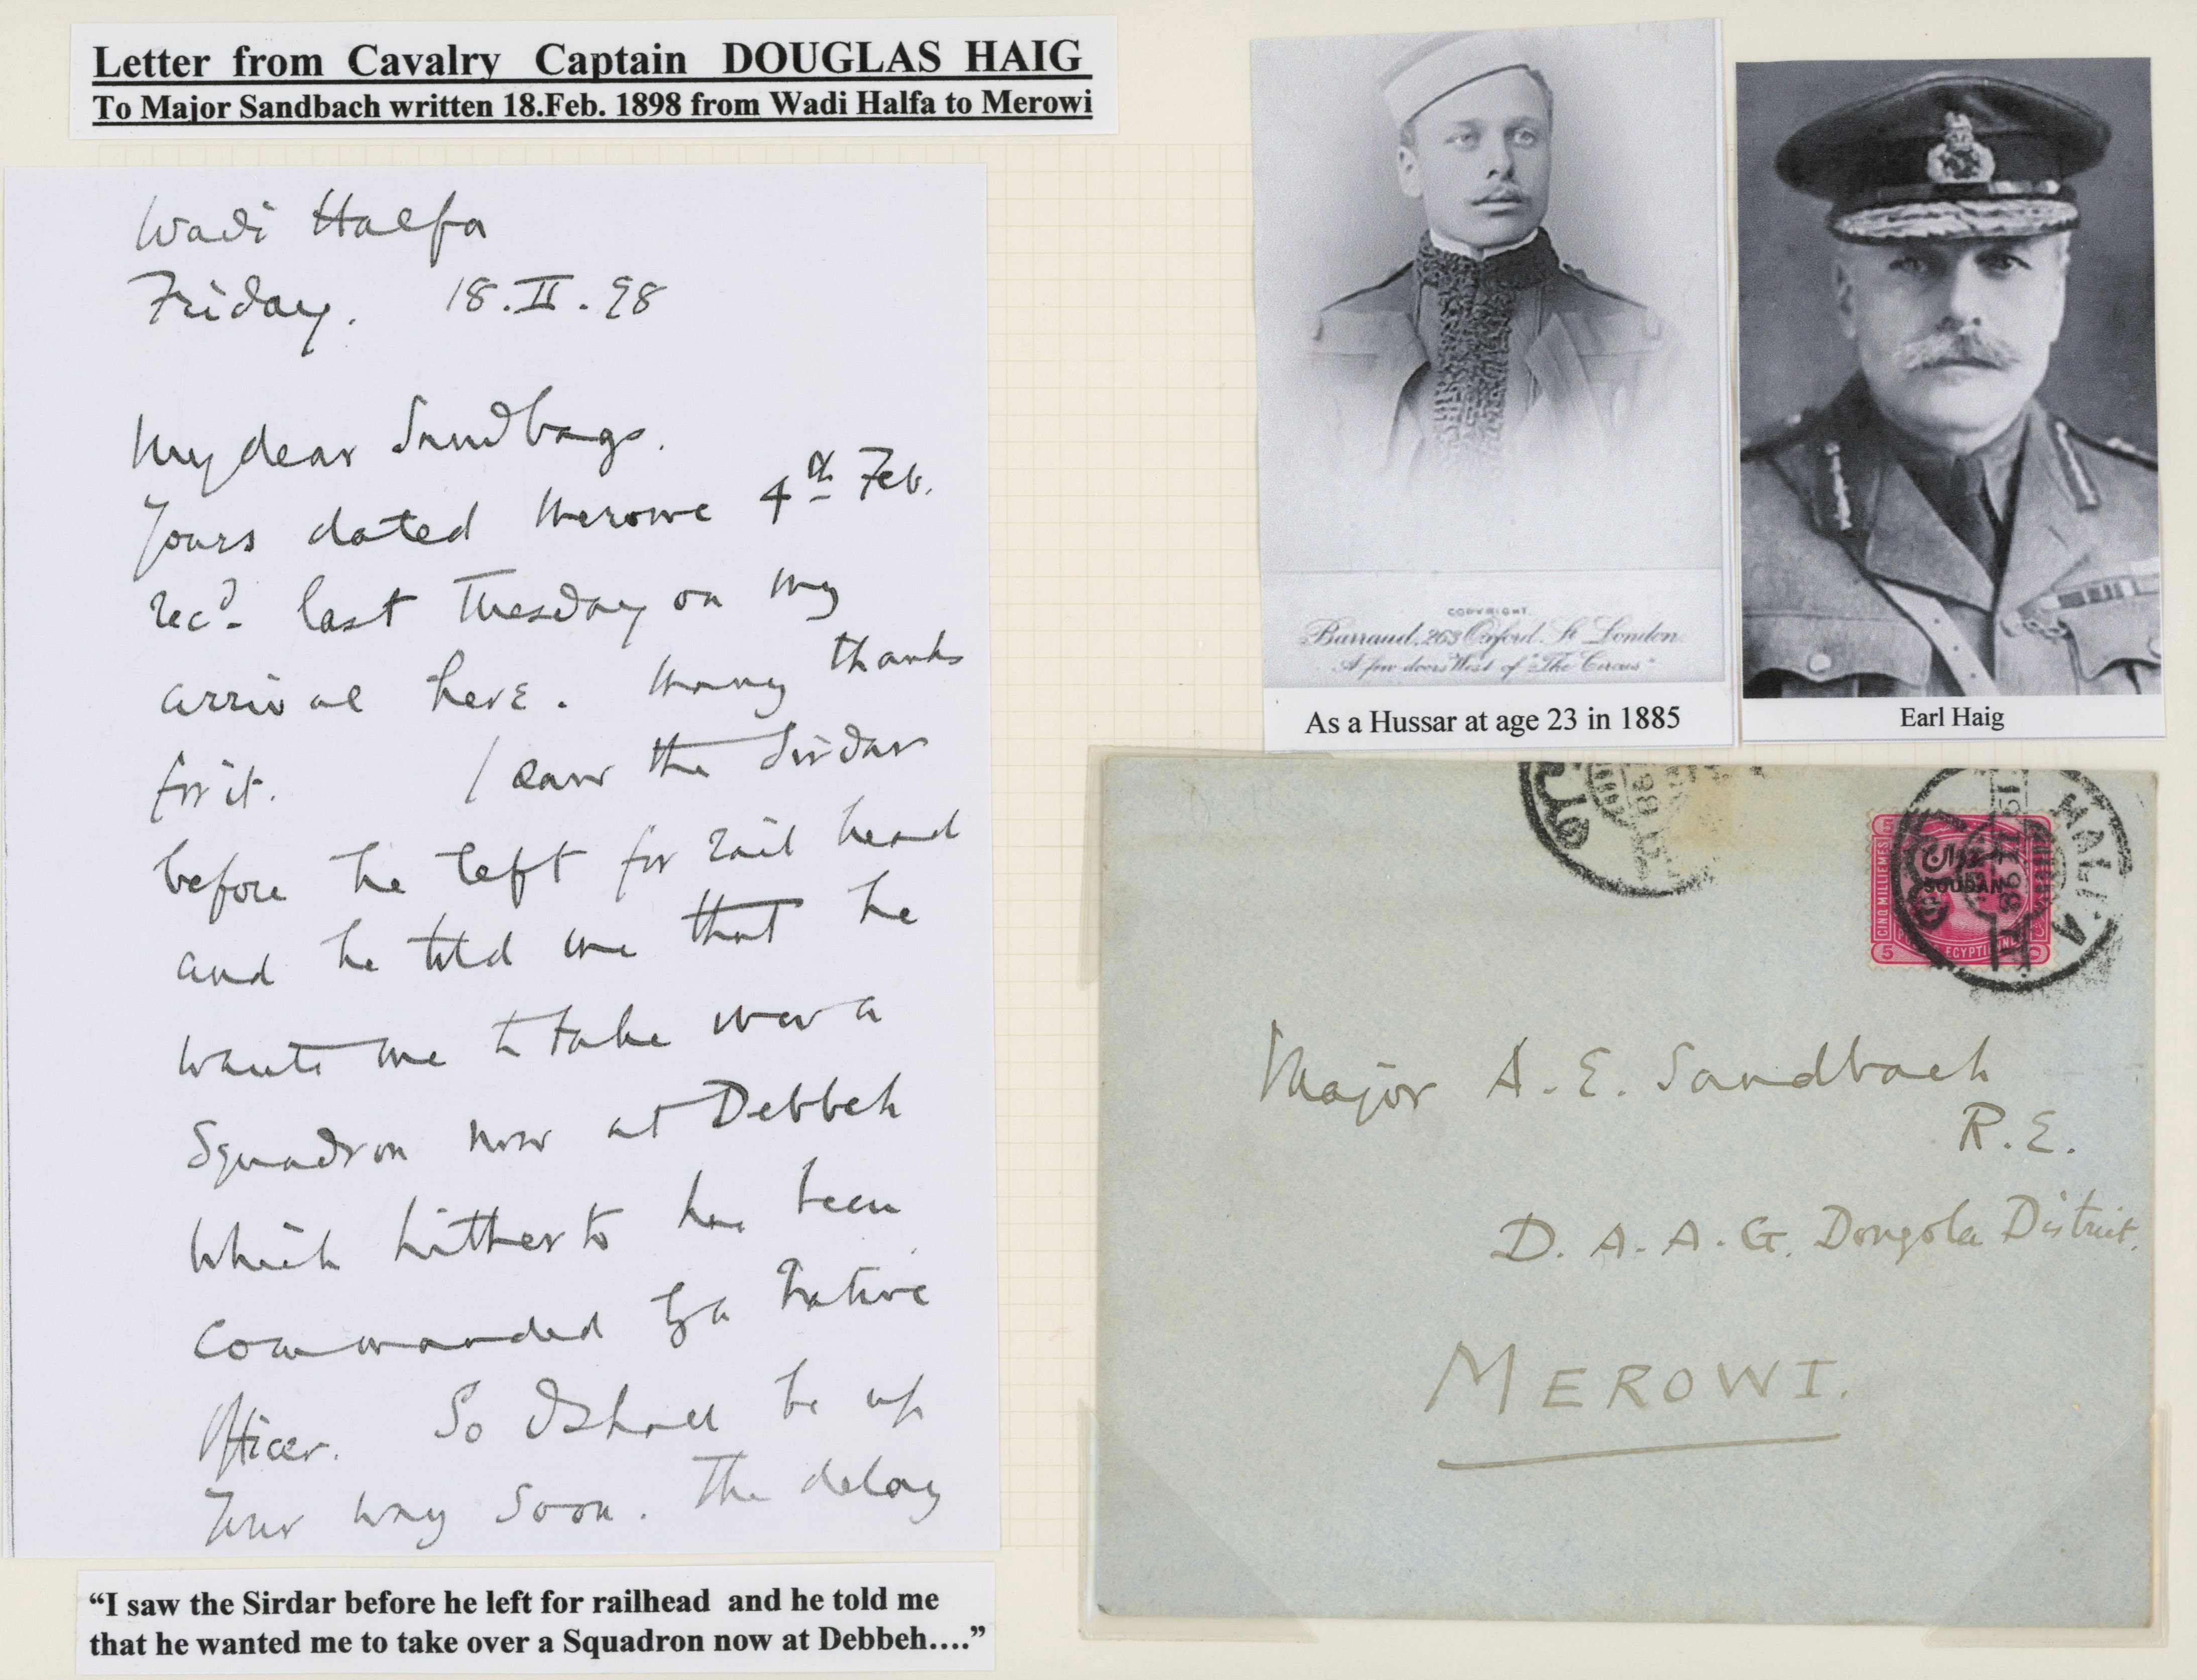 Letter from Cavalry Captain DOUGLAS HAIG
To Major Sandbach written 18.Feb. 1898 from Wadi Halfa to Merowi
Wadi Halfa
Friday. 18.II.98
My dear Sandbags.
Yours dated Merowe 4th Feb.
recd. last Tuesday on my
arrival here. Many thanks
for it. I saw the Sirdar
before he left for rail head
and he told me that he
wants me to take over a
Squadron now at Debbeh
which hitherto has been
commanded by a Native
Officer. So I shall be up
Your way soon. The delay
"I saw the Sirdar before he left for railhead and he told me
that he wanted me to take over a Squadron now at Debbeh…."
COPYRIGHT.
Barraud, 263 Oxford St London.
A few doors West of "The Circus"
As a Hussar at age 23 in 1885
Earl Haig
HALFA
CINQ MILLIEMES
السودان
SOUDAN
5
Major A. E. Sandbach
R.E.
D. A. A. G. Dongola District.
MEROWI.